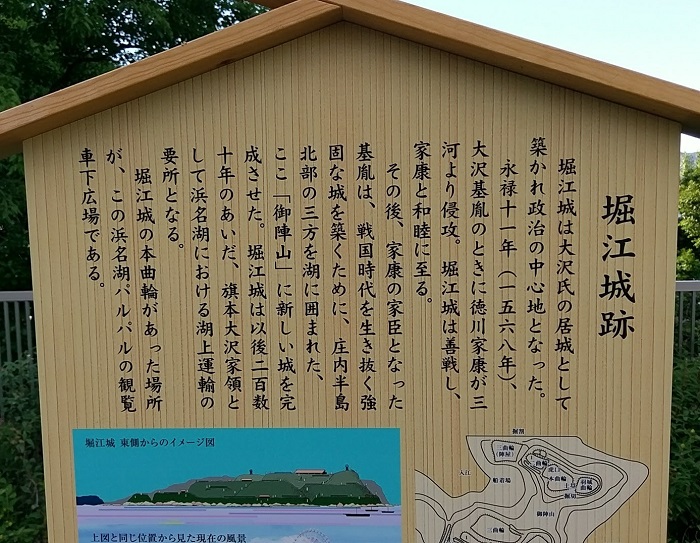 堀江城跡
堀江城は大沢氏の居城として
築かれ政治の中心地となった。
永禄十一年（一五六八年）、
大沢基胤のときに徳川家康が三
河より侵攻。堀江城は善戦し、
家康と和睦に至る。
その後、家康の家臣となった
基胤は、戦国時代を生き抜く強
固な城を築くために、庄内半島
北部の三方を湖に囲まれた、
ここ「御陣山」に新しい城を完
成させた。堀江城は以後二百数
十年のあいだ、旗本大沢家領と
して浜名湖における湖上運輸の
要所となる。
堀江城の本曲輪があった場所
が、この浜名湖パルパルの観覧
車下広場である。
堀江城 東側からのイメージ図
上図と同じ位置から見た現在の風景
堀割
三曲輪
（陣屋）
二曲輪
虎口
本曲輪
土塁
羽城
曲輪
堀切
入江
船着場
御陣山
三曲輪